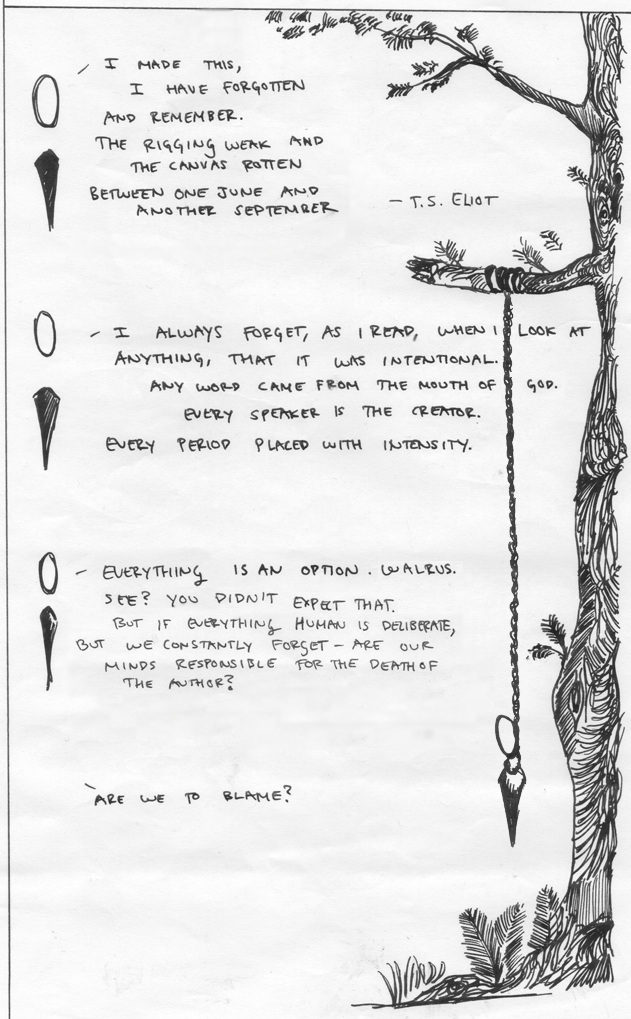 - I MADE THIS,
I HAVE FORGOTTEN
AND REMEMBER.
THE RIGGING WEAK AND
THE CANVAS ROTTEN
BETWEEN ONE JUNE AND
ANOTHER SEPTEMBER
- T.S. ELIOT
- I ALWAYS FORGET, AS I READ, WHEN I LOOK AT
ANYTHING, THAT IT WAS INTENTIONAL.
ANY WORD CAME FROM THE MOUTH OF GOD.
EVERY SPEAKER IS THE CREATOR.
EVERY PERIOD PLACED WITH INTENSITY.
- EVERYTHING IS AN OPTION. WALRUS.
SEE? YOU DIDN'T EXPECT THAT.
BUT IF EVERYTHING HUMAN IS DELIBERATE,
BUT WE CONSTANTLY FORGET - ARE OUR
MINDS RESPONSIBLE FOR THE DEATH OF
THE AUTHOR?
ARE WE TO BLAME?